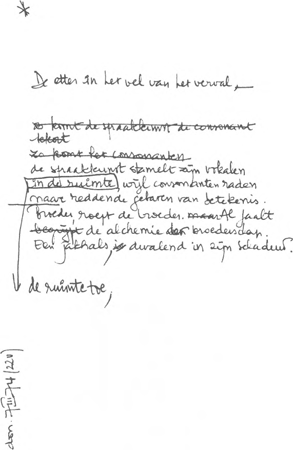 *
De etter in het vel van het verval,
zo komt de spraakkunst de consonant
tekort
zo komt het consonanten
de spraakkunst stamelt zijn vokalen
in de ruimte, wijl consonanten raden
naar reddende gebaren van betekenis.
broeder roept de broeder. Al faalt
begrijpt de alchemie der broederschap.
Een jakhals, is dwalend in zijn schaduw.
de ruimte toe,